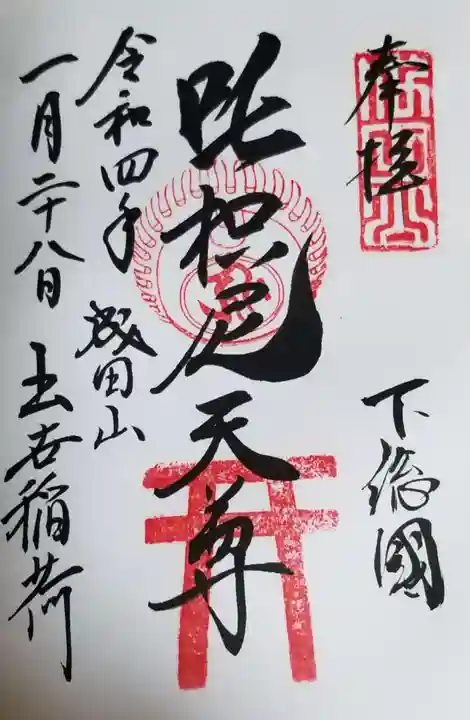 奉拝
下総國
吒枳尼天尊
令和四年
成田山
一月二十八日
出世稲荷